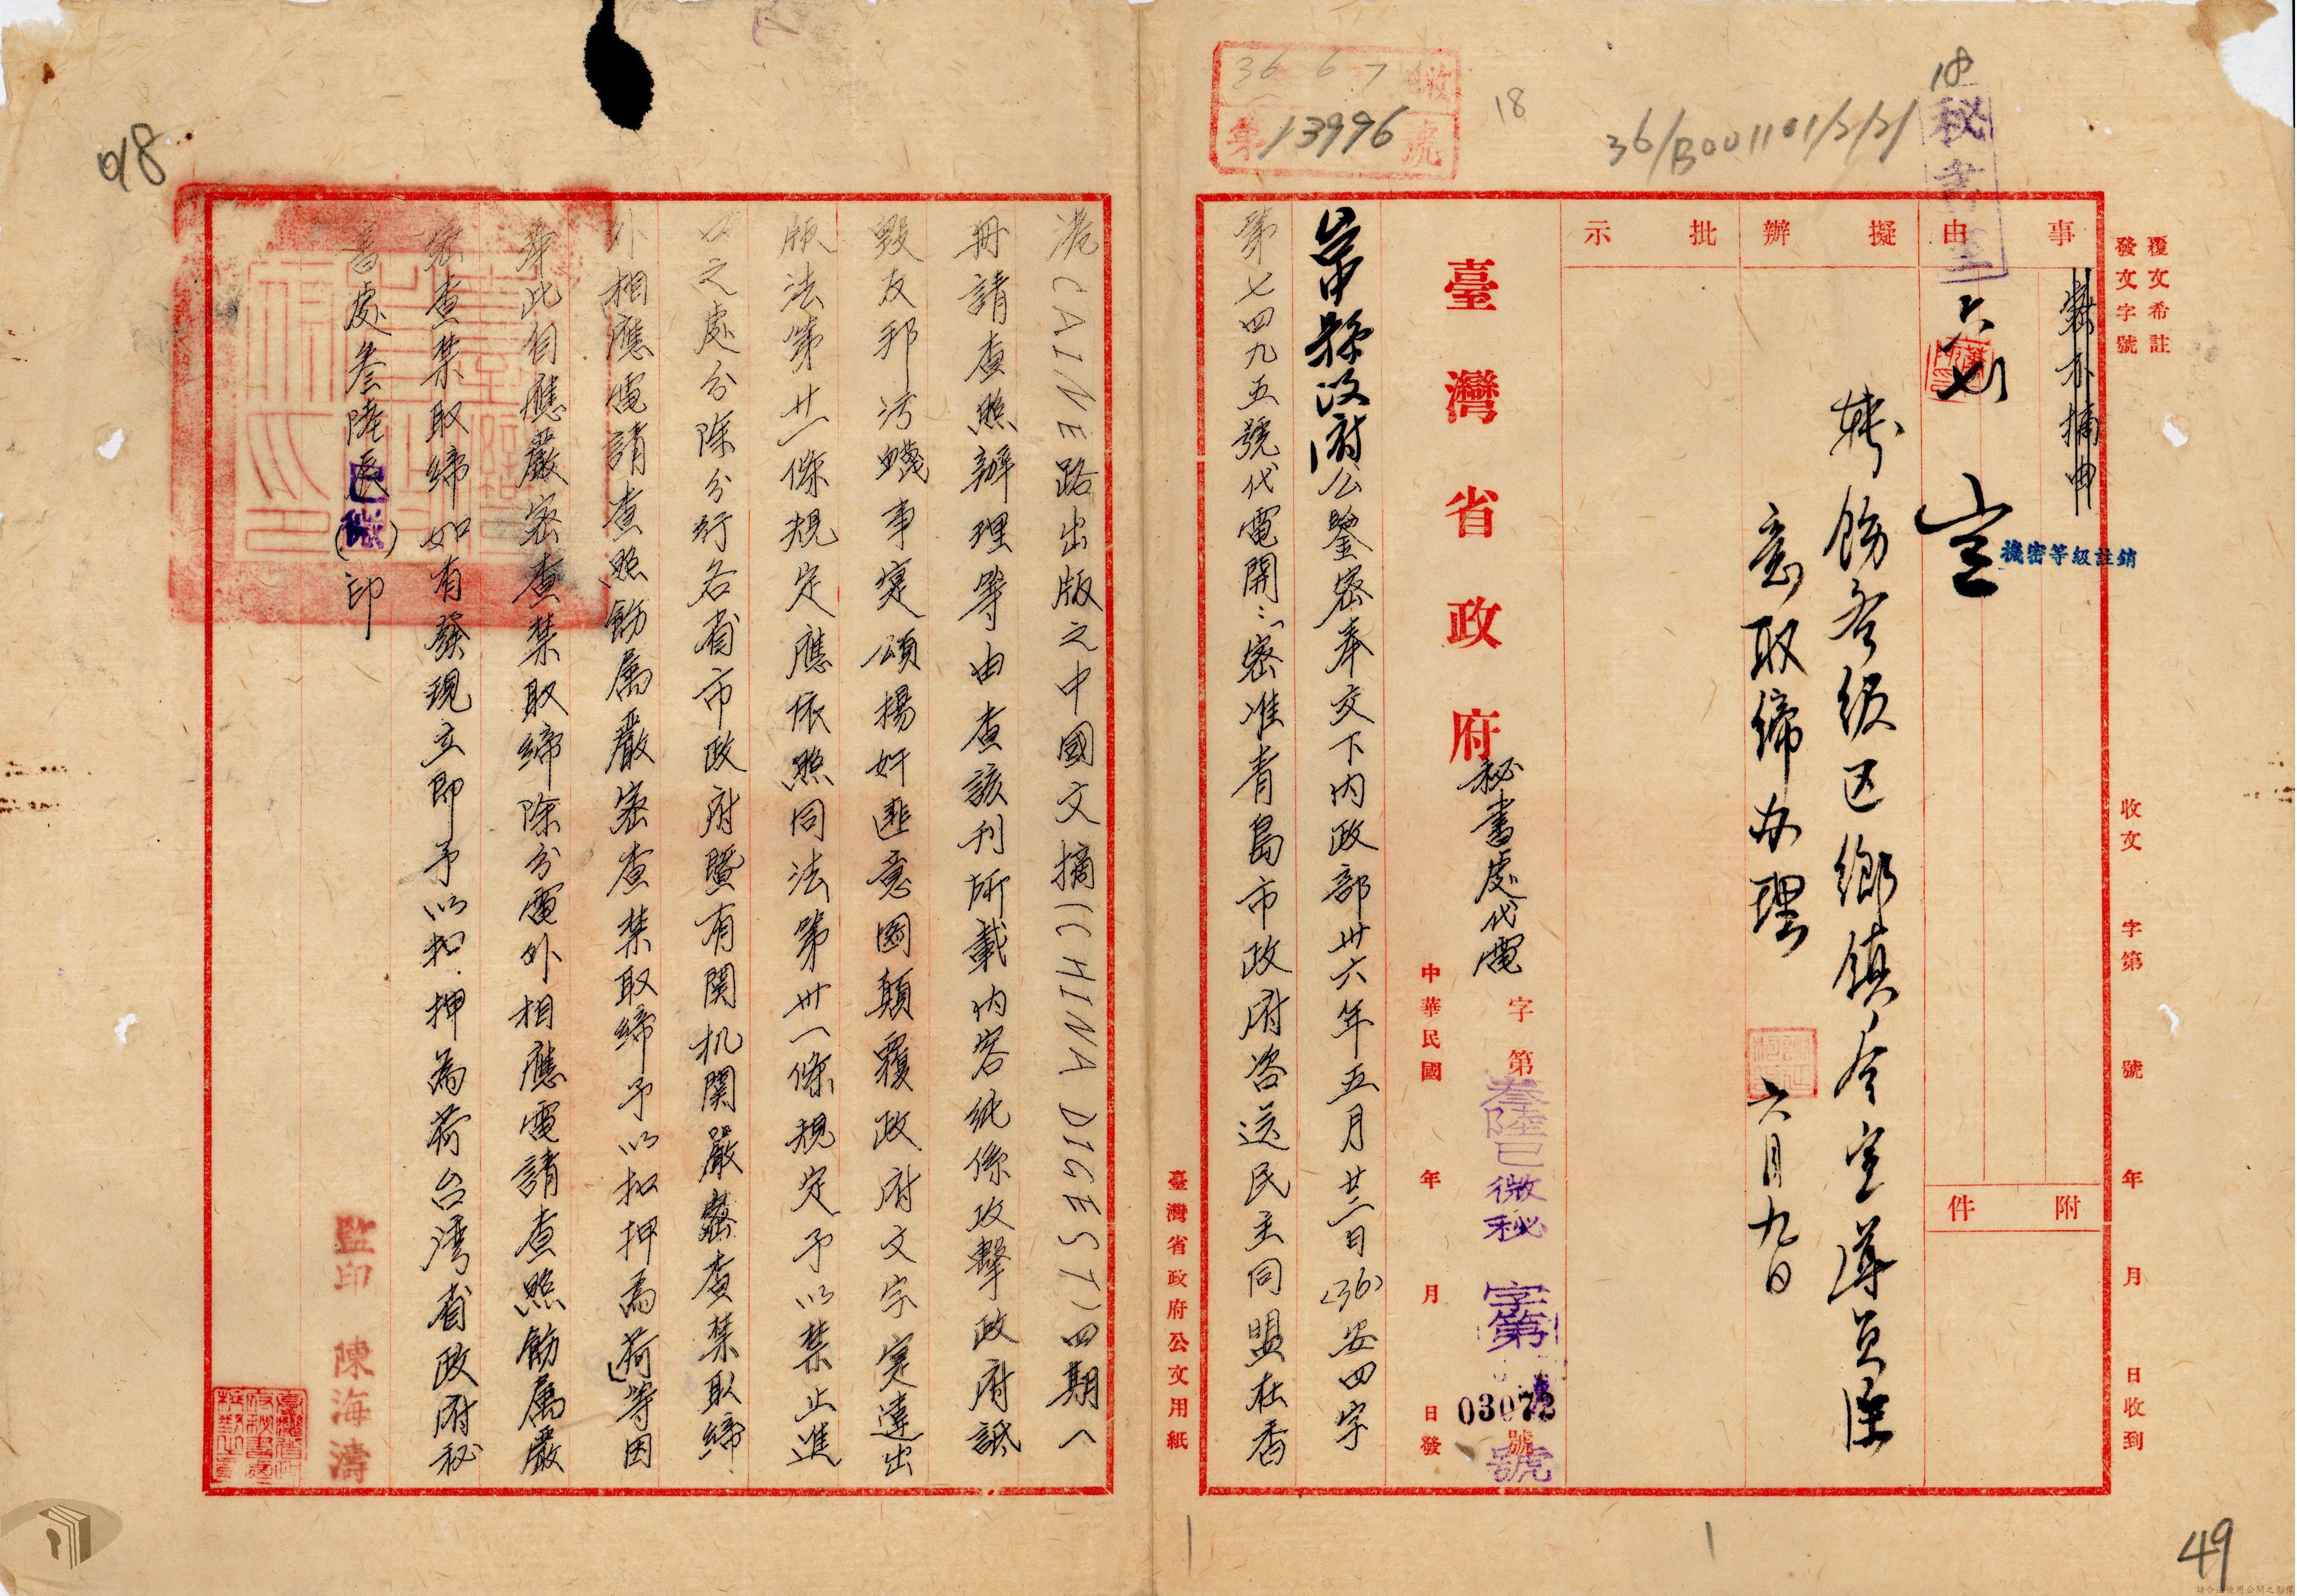 覆文希註
發文字號
收文 字第 號 年 月 日收到
事由
密不摘由
附件
機密等級註銷
秘書室
六七
擬辦
轉飭各級区鄉鎮
意取締办理
六月九日
批示
18
36/B001101/2/2/
18
36 6 7 收
第13996號
臺灣省政府秘書處代電
字第 號
叁陸巳微秘 字第 號
03072
中華民國 年 月 日發
臺中縣政府公鑒密奉交下内政部卅六年五月廿二日(36)安四字
第七四九五號代電開:「密准青島市政府咨送民主同盟在香
臺灣省政府公文用紙
港CAINE路出版之中國文摘(CHINA DIGEST)四期一
冊請查照辦理等由查該刊所載内容純係攻擊政府詆
毀友邦污衊事實頌揚奸匪意圖顛覆政府文字實違出
版法第廿一條規定應依照同法第卅一條規定予以禁止進
口之處分除分行各省市政府暨有関机関嚴密查禁取締
外相應電請查照飭属嚴密查禁取締予以扣押為荷」等因
准此自應嚴密查禁取締除分電外相應電請查照飭属嚴
密查禁取締如有發現立即予以扣押為荷台湾省政府秘
書處叁陸辰( )印
監印 陳海濤
48
49